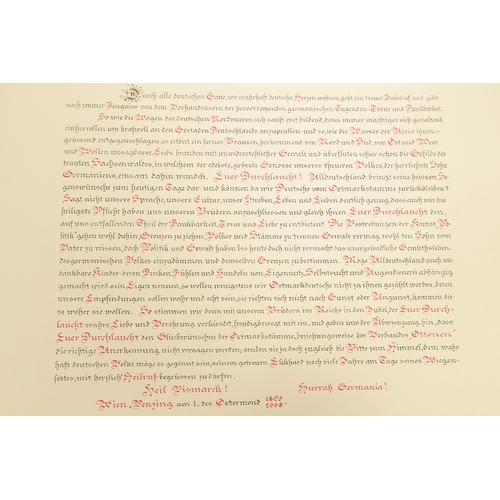 Durch alle deutschen Gaue, wo wahrhaft deutsche Herzen wohnen, geht ein treuer Jubelruf und gibt
noch immer Zeugniss von dem Vorhandensein der hervorragenden germanischen Tugenden Treue und Dankbarkeit.
So wie die Wogen des deutschen Nordmeeres, sich sanft erst bildend, dann immer mächtiger sich gestaltend,
einherrollen um kraftvoll an den Gestaden Deutschlands anzuprallen und so, wie die Wasser der Adria ihnen
entgegenschlagen, so ertönt ein fernes Brausen, herkommend von Nord und Süd, von Ost und West,
und Wellen unsagbarer Liebe branden mit unwiderstehlicher Gewalt und überfluten schier schon die Gefilde des
trauten Sachsenwaldes, in welchem der edelste, grösste Genosse unseres theuren Volkes, der herrlichste Sohn
Germaniens, einsam dahin wandelt. Euer Durchlaucht! Alldeutschland bringt seine heissen Se-
genswünsche zum heutigen Tage dar und können da wir Deutsche vom Ostmarkstamme zurückbleiben?
Sagt nicht unsere Sprache, unsere Cultur, unser Streben, Leben und Lieben deutlich genug, dass auch wir die
heiligste Pflicht haben uns unseren Brüdern anzuschliessen und gleich ihnen Euer Durchlaucht den,
auf uns entfallenden Theil der Dankbarkeit, Treue und Liebe zu entbieten? Die Bestrebungen der Kunst „Po-
litik" gehen wohl dahin, Grenzen zu ziehen, Völker und Stämme zu trennen, Gewalt vermag wohl den Sohn vom
Vater zu reissen, doch Politik und Gewalt haben bis heute doch nicht vermocht das unergründliche Gemüthsleben
des germanischen Volkes einzudämmen und demselben Grenzen zu bestimmen. Möge Alldeutschland auch un-
dankbare Kinder deren Denken, Fühlen und Handeln von Eigennutz, Selbstsucht und Augendienerei abhängig
gemacht wird sein Eigen nennen, so wollen wenigstens wir Ostmarkdeutsche nicht zu ihnen gezählt werden, denn
unsere Empfindungen sollen wahr und echt sein, sie richten sich nicht nach Gunst oder Ungunst, kommen die-
se woher sie wollen. So stimmen wir denn mit unseren Brüdern im Reiche in den Jubel, der Euer Durch-
laucht wahre Liebe und Verehrung verkündet, freudigbewegt mit ein, und geben uns der Überzeugung hin, dass
Euer Durchlaucht den Glückwünschen der Ostmarkstämme, beziehungsweise des Verbandes „Ottonen"
die richtige Anerkennung nicht versagen werden, senden sie ja doch zugleich die Bitte zum Himmel, dem wahr-
haft deutschen Volke möge es gegönnt sein, seinem getreuen Ekkhard noch viele Jahre am Tage seines Wiegen-
festes, mit herzlich' Heilruf begrüssen zu dürfen.
Heil Bismarck! Hurrah Germania!
Wien, Penzing am 1. des Ostermond 1895
2008.